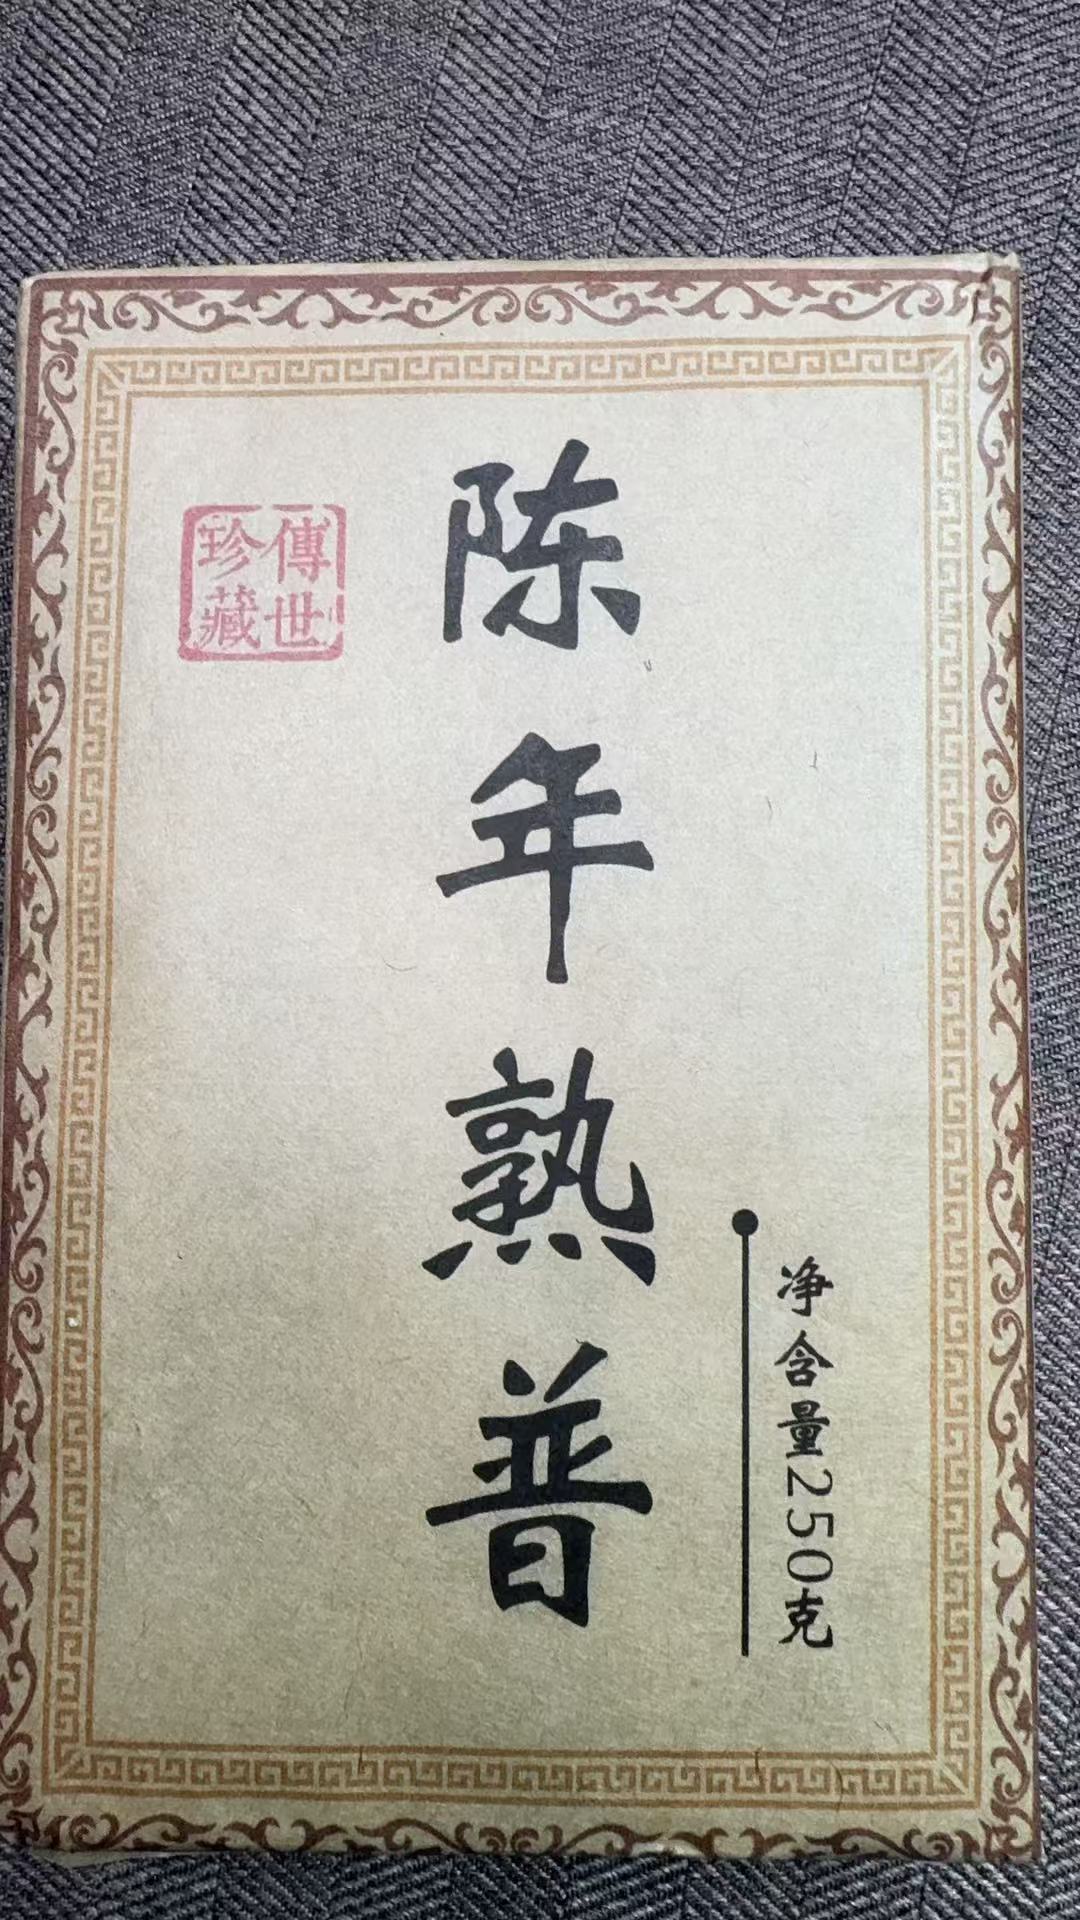 陈年熟普
傳世
珍藏
净含量250克